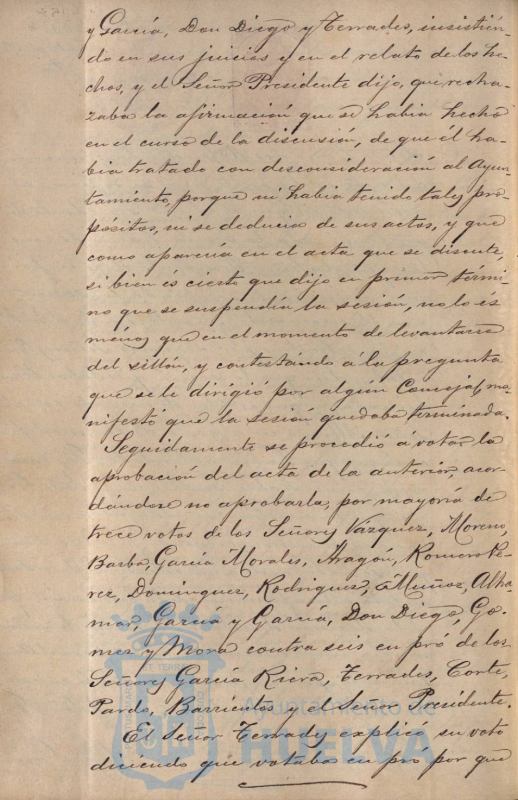 y García, Don Diego y Terrades, insistien-
do en sus juicios y en el relato de los he-
chos, y el Señor Presidente dijo, que recha-
zaba la afirmación que se habia hecho
en el curso de la discusión, de que él ha-
bia tratado con desconsideración al Ayun-
tamiento, porque ni habia tenido tales pro-
pósitos, ni se deducia de sus actos, y que
como aparecia en el acta que se discute,
si bien és cierto que dijo en primer térmi-
no que se suspendía la sesión, no lo és
ménos que en el momento de levantarse
del sillón, y contestándo á la pregunta
que se le dirigió por algún Concejal, ma-
nifestó que la sesión quedaba terminada.
Seguidamente se procedió á votar la
aprobación del acta de la anterior, acor-
dándose no aprobarla, por mayoría de
trece votos de los Señores Vázquez, Moreno,
Barba, García Morales, Aragón, Romero Pé-
rez, Dominguez, Rodriguez, Muñoz, Alha-
mar, García y García, Don Diego, Go-
mez y Mora contra seis en pró de los
Señores García Riera, Terrades, Corte,
Pardo, Barrientos y el Señor Presidente.
El Señor Terrades explicó su voto
diciendo que votaba en pró por que
Ayuntamiento de
HUELVA